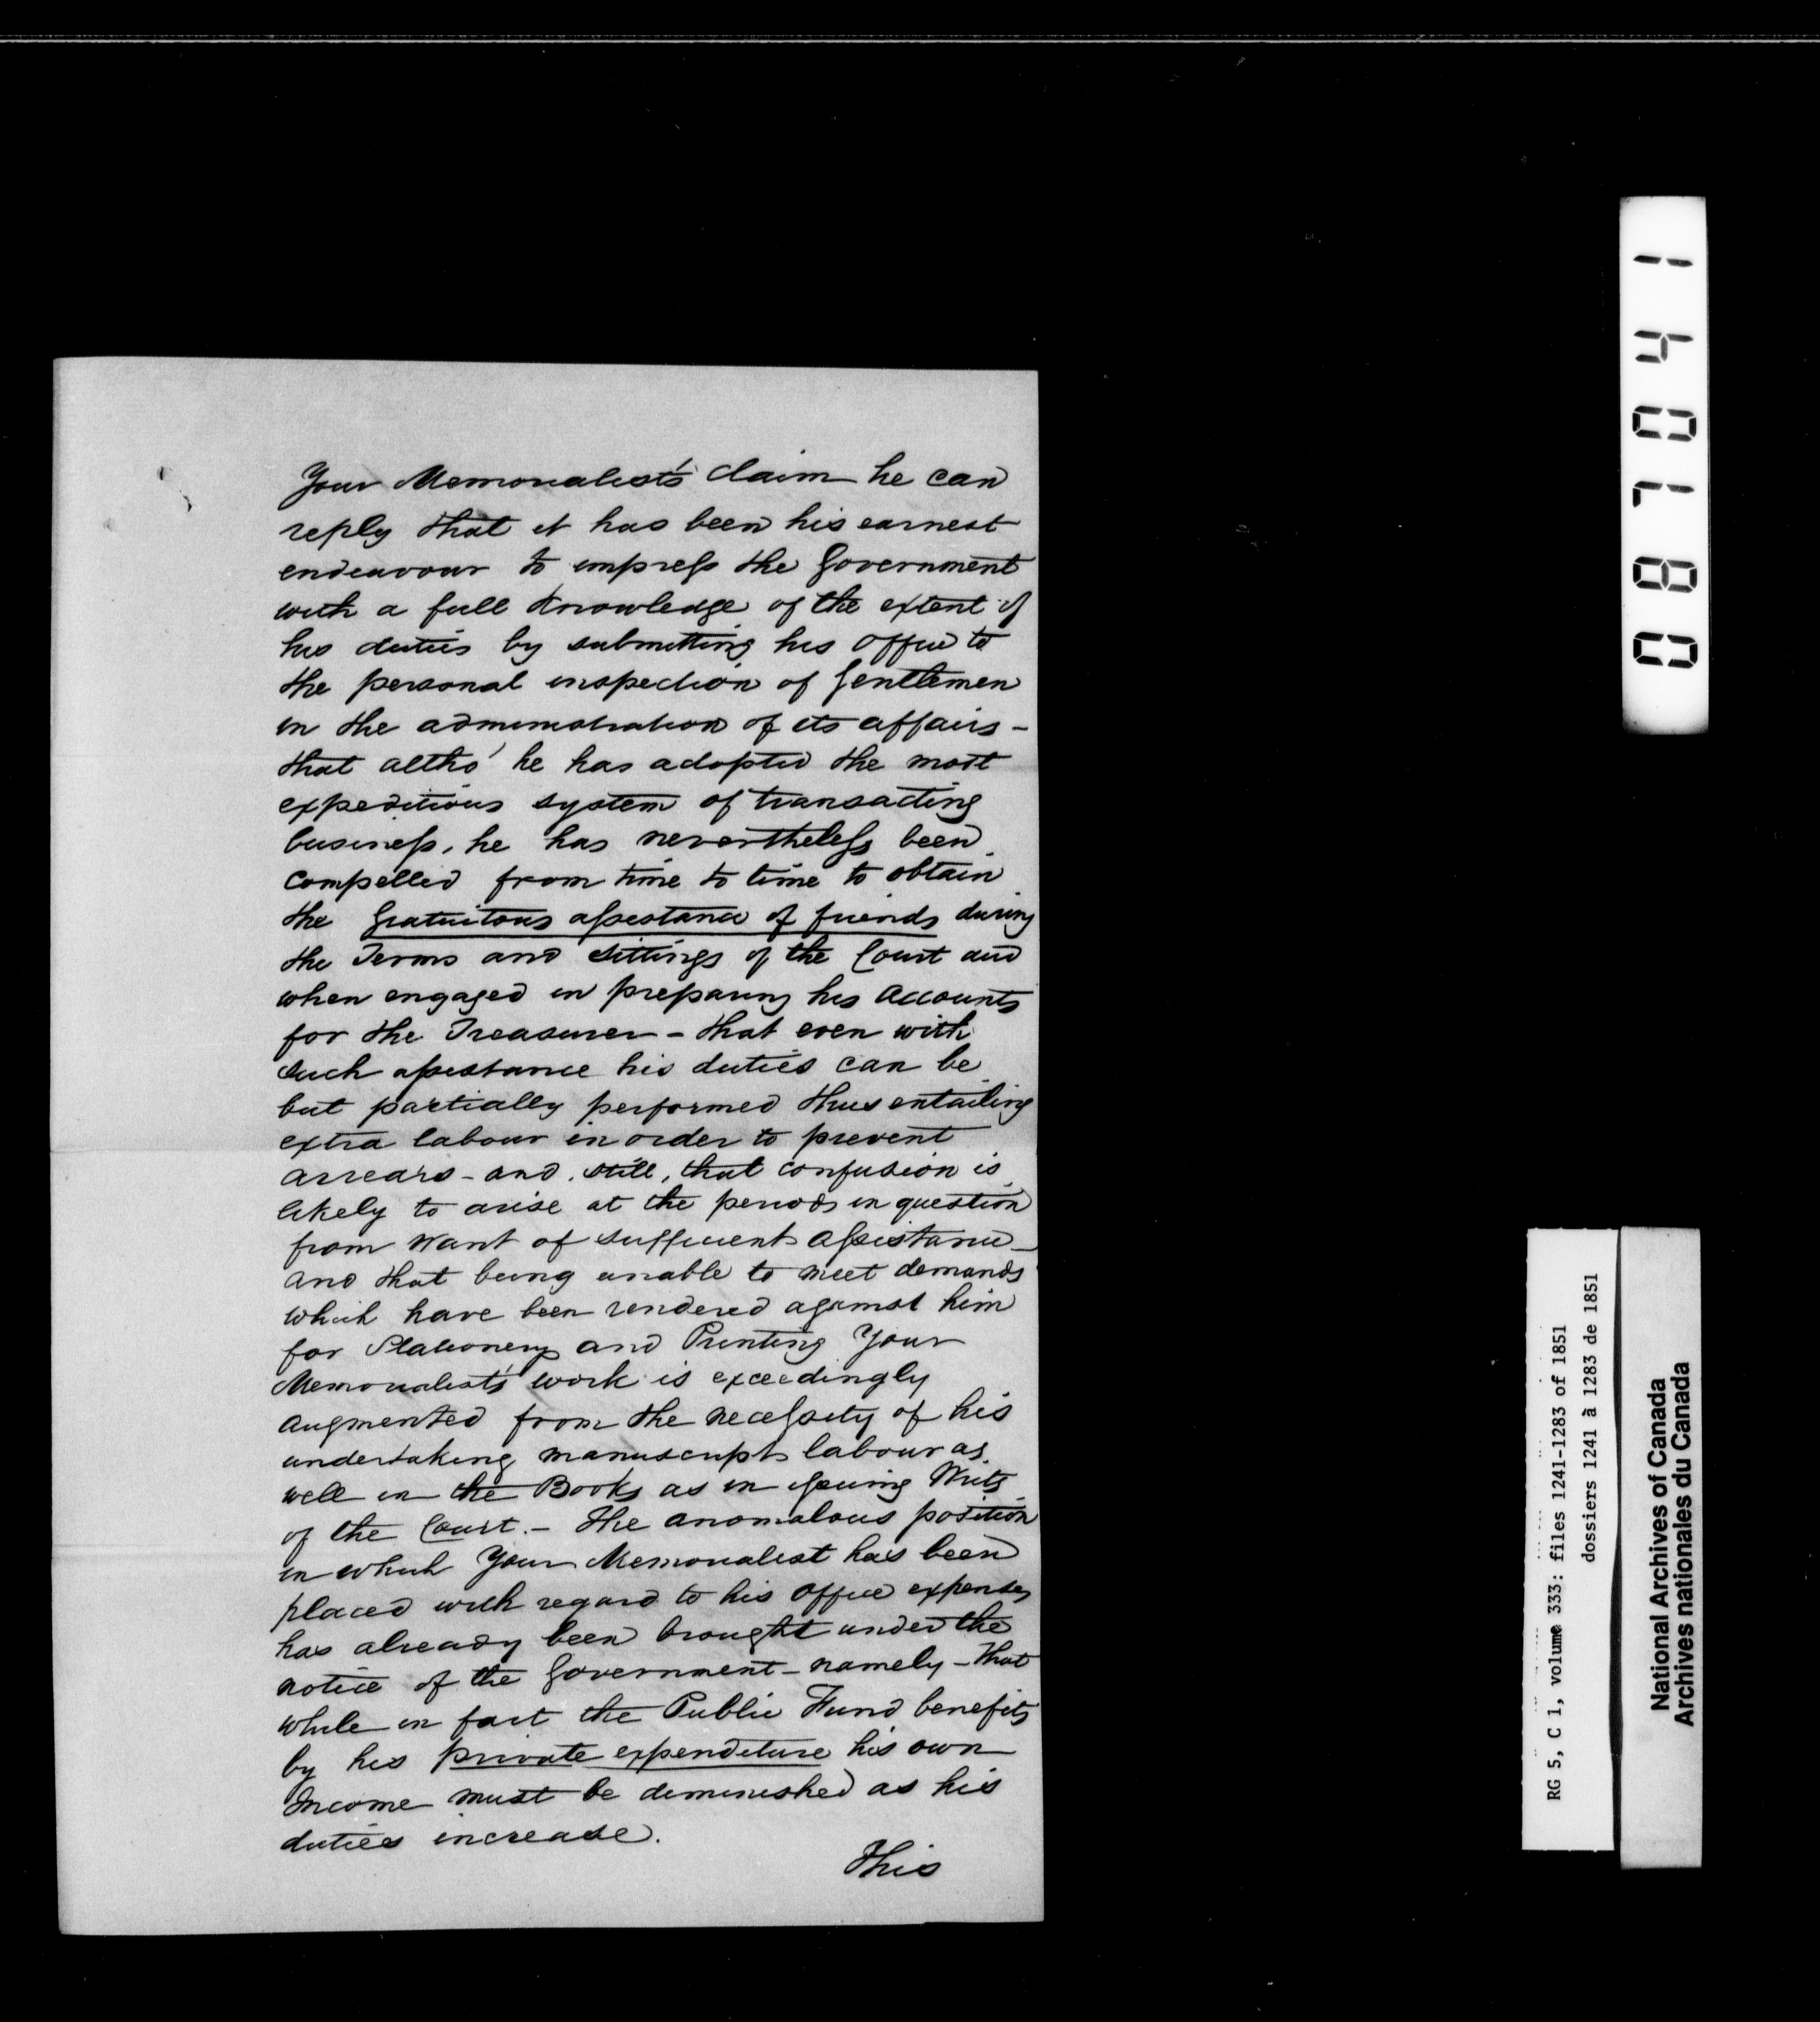 Your Memorialist's claim he can
reply that it has been his earnest
endeavour to impress the Government
with a full knowledge of the extent of
his duties by submitting his Office to
the personal inspection of Gentlemen
in the administration of its affairs -
that altho' he has adopted the most
expeditious system of transacting
business, he has nevertheless been
compelled from time to time to obtain
the Gratuitous assistance of friends during
the Terms and Sittings of the Court and
when engaged in preparing his Accounts
for the Treasurer - that even with
such assistance his duties can be
but partially performed thus entailing
extra labour in order to prevent
arrears - and, still, that confusion is
likely to arise at the periods in question
from want of sufficient assistance -
and that being unable to meet demands
which have been rendered against him
for Stationery and Printing Your
Memorialist's work is exceedingly
augmented from the necessity of his
undertaking manuscript labour as
well in the Books as in issuing Writs
of the Court. - The anomalous position
in which Your Memorialist has been
placed with regard to his Office expenses
has already been brought under the
notice of the Government - namely - that
while in fact the Public Fund benefits
by his private expenditure his own
Income must be diminished as his
duties increase.
This
087041
RG 5, C 1, volume 333: files 1241-1283 of 1851
dossiers 1241 à 1283 de 1851
National Archives of Canada
Archives nationales du Canada